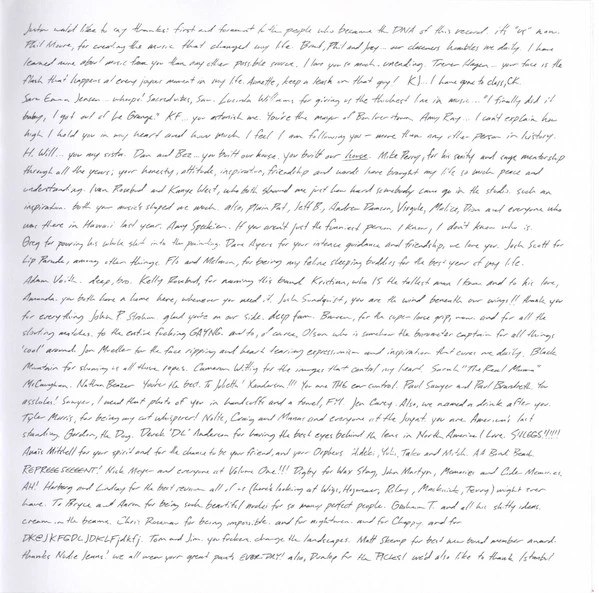 Justin would like to say thanks: first and foremost to the people who became the DNA of this record. it's "us" now.
Phil Moore, for creating the music that changed my life. Brad, Phil and Joey... our closeness humbles me daily. I have
learned more about music from you than any other possible source. I love you so much. unending. Trever Hagen... your face is the
flash that happens at every joyous moment in my life. Annette, keep a leash on that guy! KJ... I have gone to class, CK.
Sara Emma Jensen... whoops! Sacred vibes, Sara. Lucinda Williams for giving us the thickest line in music... "I finally did it
baby, I got out of La Grange." KF... you astonish me. You're the mayor of Amy Ray... I can't explain how
high I hold you in my heart and how much I feel I am following you - more than any other person in history.
H. Will... you my sista. Dan and Bez... you built our house. you built our house. Mike Perry, for his sanity and sage mentorship
through all the years; your honesty, attitude, inspiration, friendship and words have brought my life so much peace and
understanding. Ivan Rosebud and Kanye West, who both showed me just how hard somebody can go in the studio. such an
inspiration. both your music's shaped me much. also, Plain Pat, Jeff B, Andrew Dawson, Virgule, Malice, Dion and everyone who
was there in Hawaii last year. Amy Speckien. If you aren't just the funniest person I know, I don't know who is.
Greg for pouring his whole shit into the painting. Dave Ayers for your intense guidance and friendship, we love you. Josh Scott for
Lip Parade, among other things. Flo and Melmon, for being my feline sleeping buddies for the best year of my life.
Adam Voith. deep, bro. Kelly Rosebud, for naming this band. Kristian, who IS the tallest man I know and to his love,
Amanda. you both have a home here, whenever you need it. Josh Sundquist, you are the wind beneath our wings!! thank you
for everything. John P. Strohm. glad you're on our side. deep fam. for the super-love pop, man. and for all the
starting matches. to the entire fucking GAYNG. and to, of course, Olson who is somehow the barometer captain for all things
'cool' around. Jon Mueller for the face ripping and heart tearing expressionism and inspiration that cures me daily. Black
Mountain for showing us all those ropes. Cameron Wittig for the images that control my heart. Sarah "The Real Mama"
McCaughan. Nathan Beazer. You're the best. To Juliette! Kandaran!!! You are THE ear control. Paul Sawyer and Paul Brandreth. You
assholes! Sawyer, I used that photo of you in handcuffs and a towel, FYI. Jen Carey. Also, we named a drink after you.
Tyler Morris, for being my cat whisperer! Nolte, Craig and Marcus and everyone at the Joynt. you are America's last
standing. Gordon, the Dog. Derek 'DL' Anderson for having the best eyes behind the lens in North America! Love. SULEGS!!!!!
Anaïs Mitchell for your spirit and for the chance to be your friend, and your Orpheus. Yuki, Talia and Mitch. AA Bondy Beach.
REPREESEEEENT! Nick Meyer and everyone at Volume One!!! Digby for War Stag, John Martyn, Memories and Cider Memories,
AH! Harburg and Lindsay for the best reunion all of us (here's looking at Wigs, Haymaker, Riley, Terry) might ever
have. To Bryce and Aaron for being such beautiful nodes for so many perfect people. Graham T. and all his shitty ideas.
cream in the beams. Chris Rosenau for being impossible. and for nightmares. and for Chappy. and for
DK@JKFGDLJDKLFjdkfj. Tom and Jim. you fuckers change the landscapes. Matt Skemp for best new band member award.
thanks Nudie Jeans! we all wear your great pants EVERYDAY! also, Dunlop for the PICKS! we'd also like to thank Istanbul